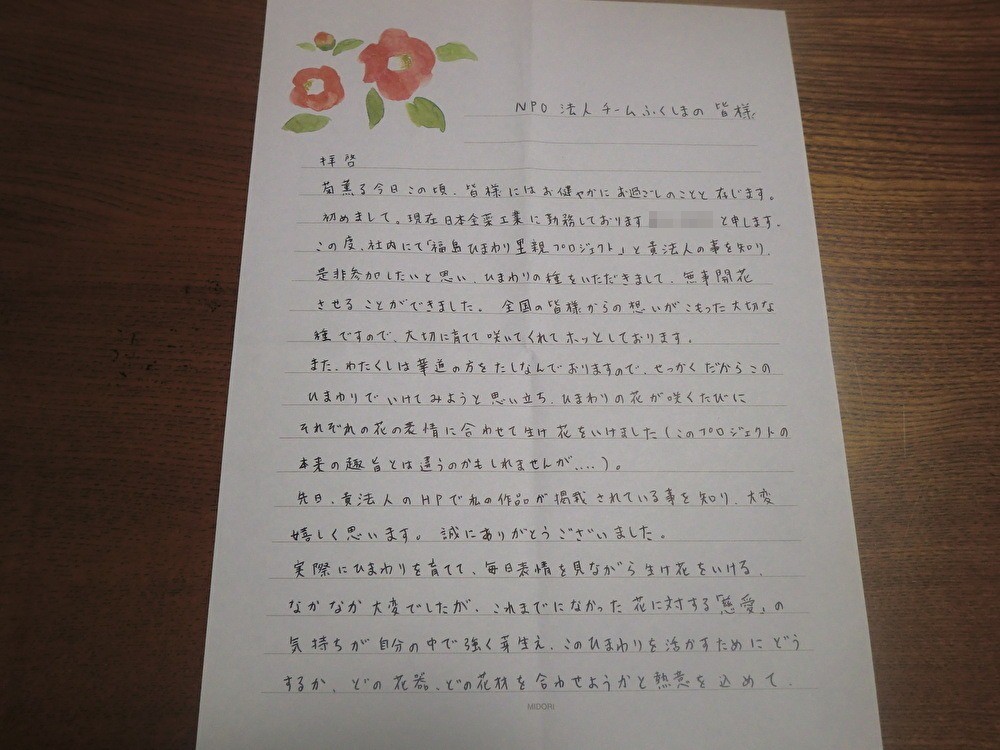 NPO 法人 チームふくしまの 皆様
拝啓
菊薫る今日この頃、皆様にはお健やかに お過ごしのことと存じます。
初めまして。現在日本全薬工業に勤務しております と申します。
この度、社内にて「福島ひまわり里親プロジェクト」と貴法人の事を知り、
是非参加したいと思い、ひまわりの種をいただきまして、無事開花
させることができました。 全国の皆様からの想いがこもった大切な
種ですので、大切に育てて咲いてくれてホッとしております。
また、わたくしは華道の方をたしなんでおりますので、せっかくだからこの
ひまわりでいけてみようと思い立ち、ひまわりの花が咲くたびに
それぞれの花の表情に合わせて生け花をいけました(このプロジェクトの
本来の趣旨とは違うのかもしれませんが....)。
先日、貴法人のHPで私の作品が掲載されている事を知り、大変
嬉しく思います。 誠にありがとうございました。
実際にひまわりを育てて、毎日表情を見ながら生け花をいける、
なかなか大変でしたが、これまでになかった花に対する「慈愛」の
気持ちが自分の中で強く芽生え、このひまわりを活かすためにどう
するか、どの花器、どの花材を合わせようかと熱意を込めて、
MIDORI